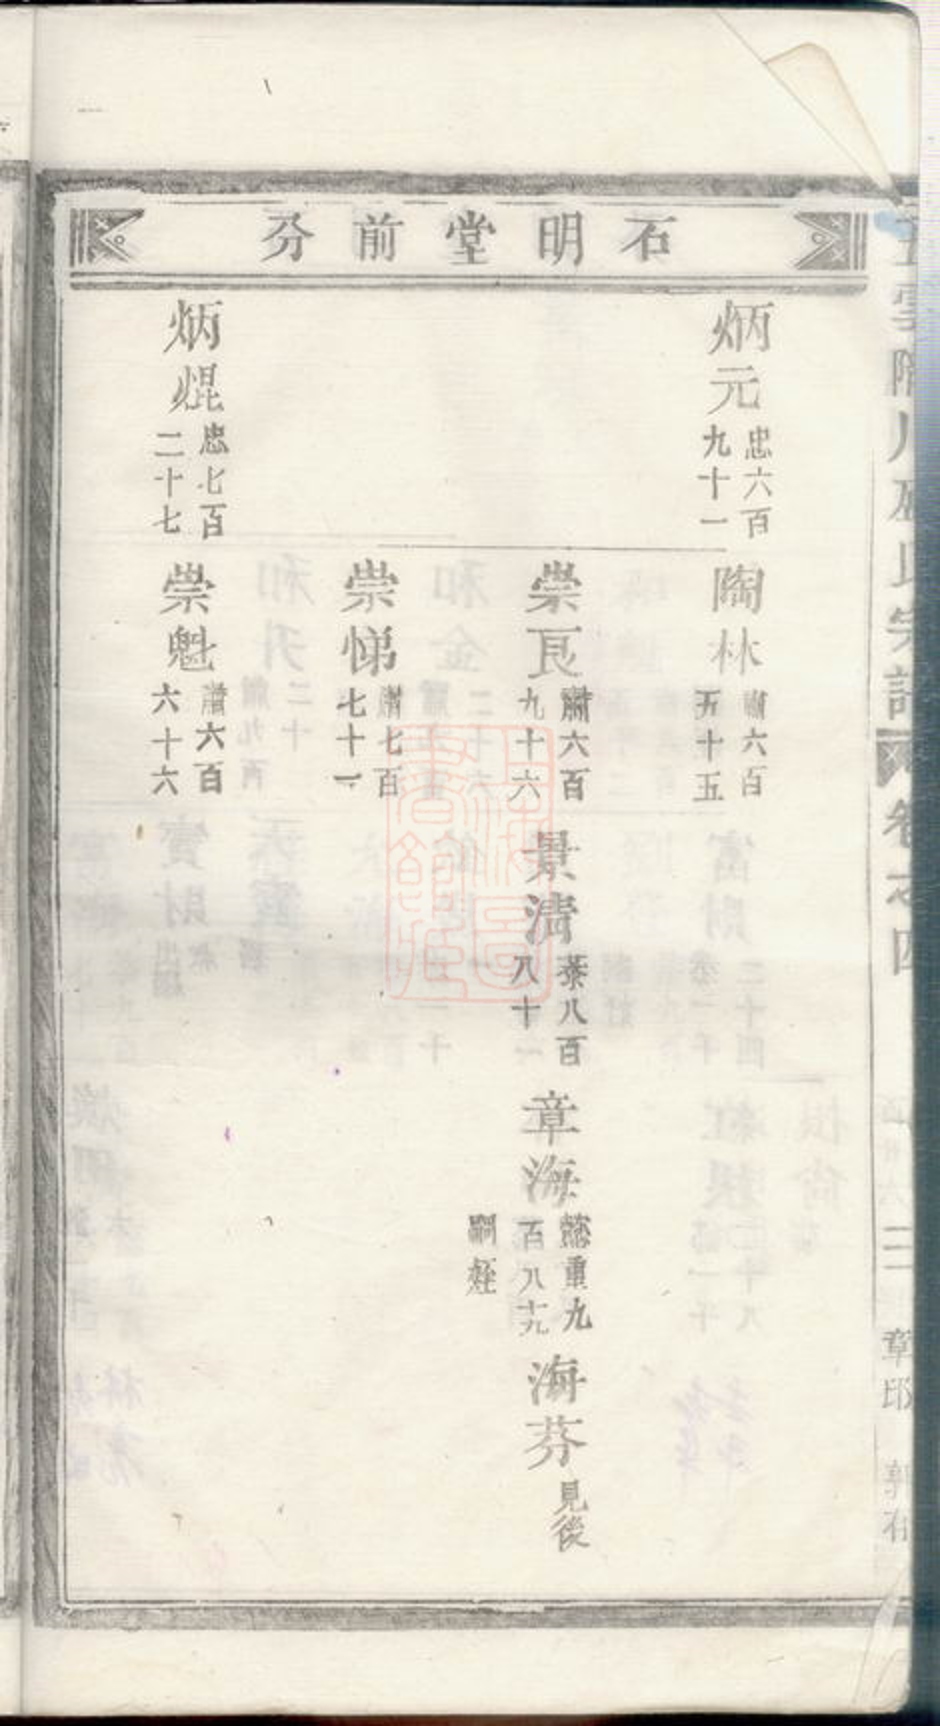 石明堂前分
炳元 忠六百九十一
陶林 肅六百五十五
崇良 肅六百九十六
景清 恭八百八十
章海 懿重九百八十九 嗣姪
海芬 見後
崇悌 肅七百七十一
炳焜 忠七百二十七
崇魁 肅六百六十六
氏宗譜 卷之四
章邸 郭石